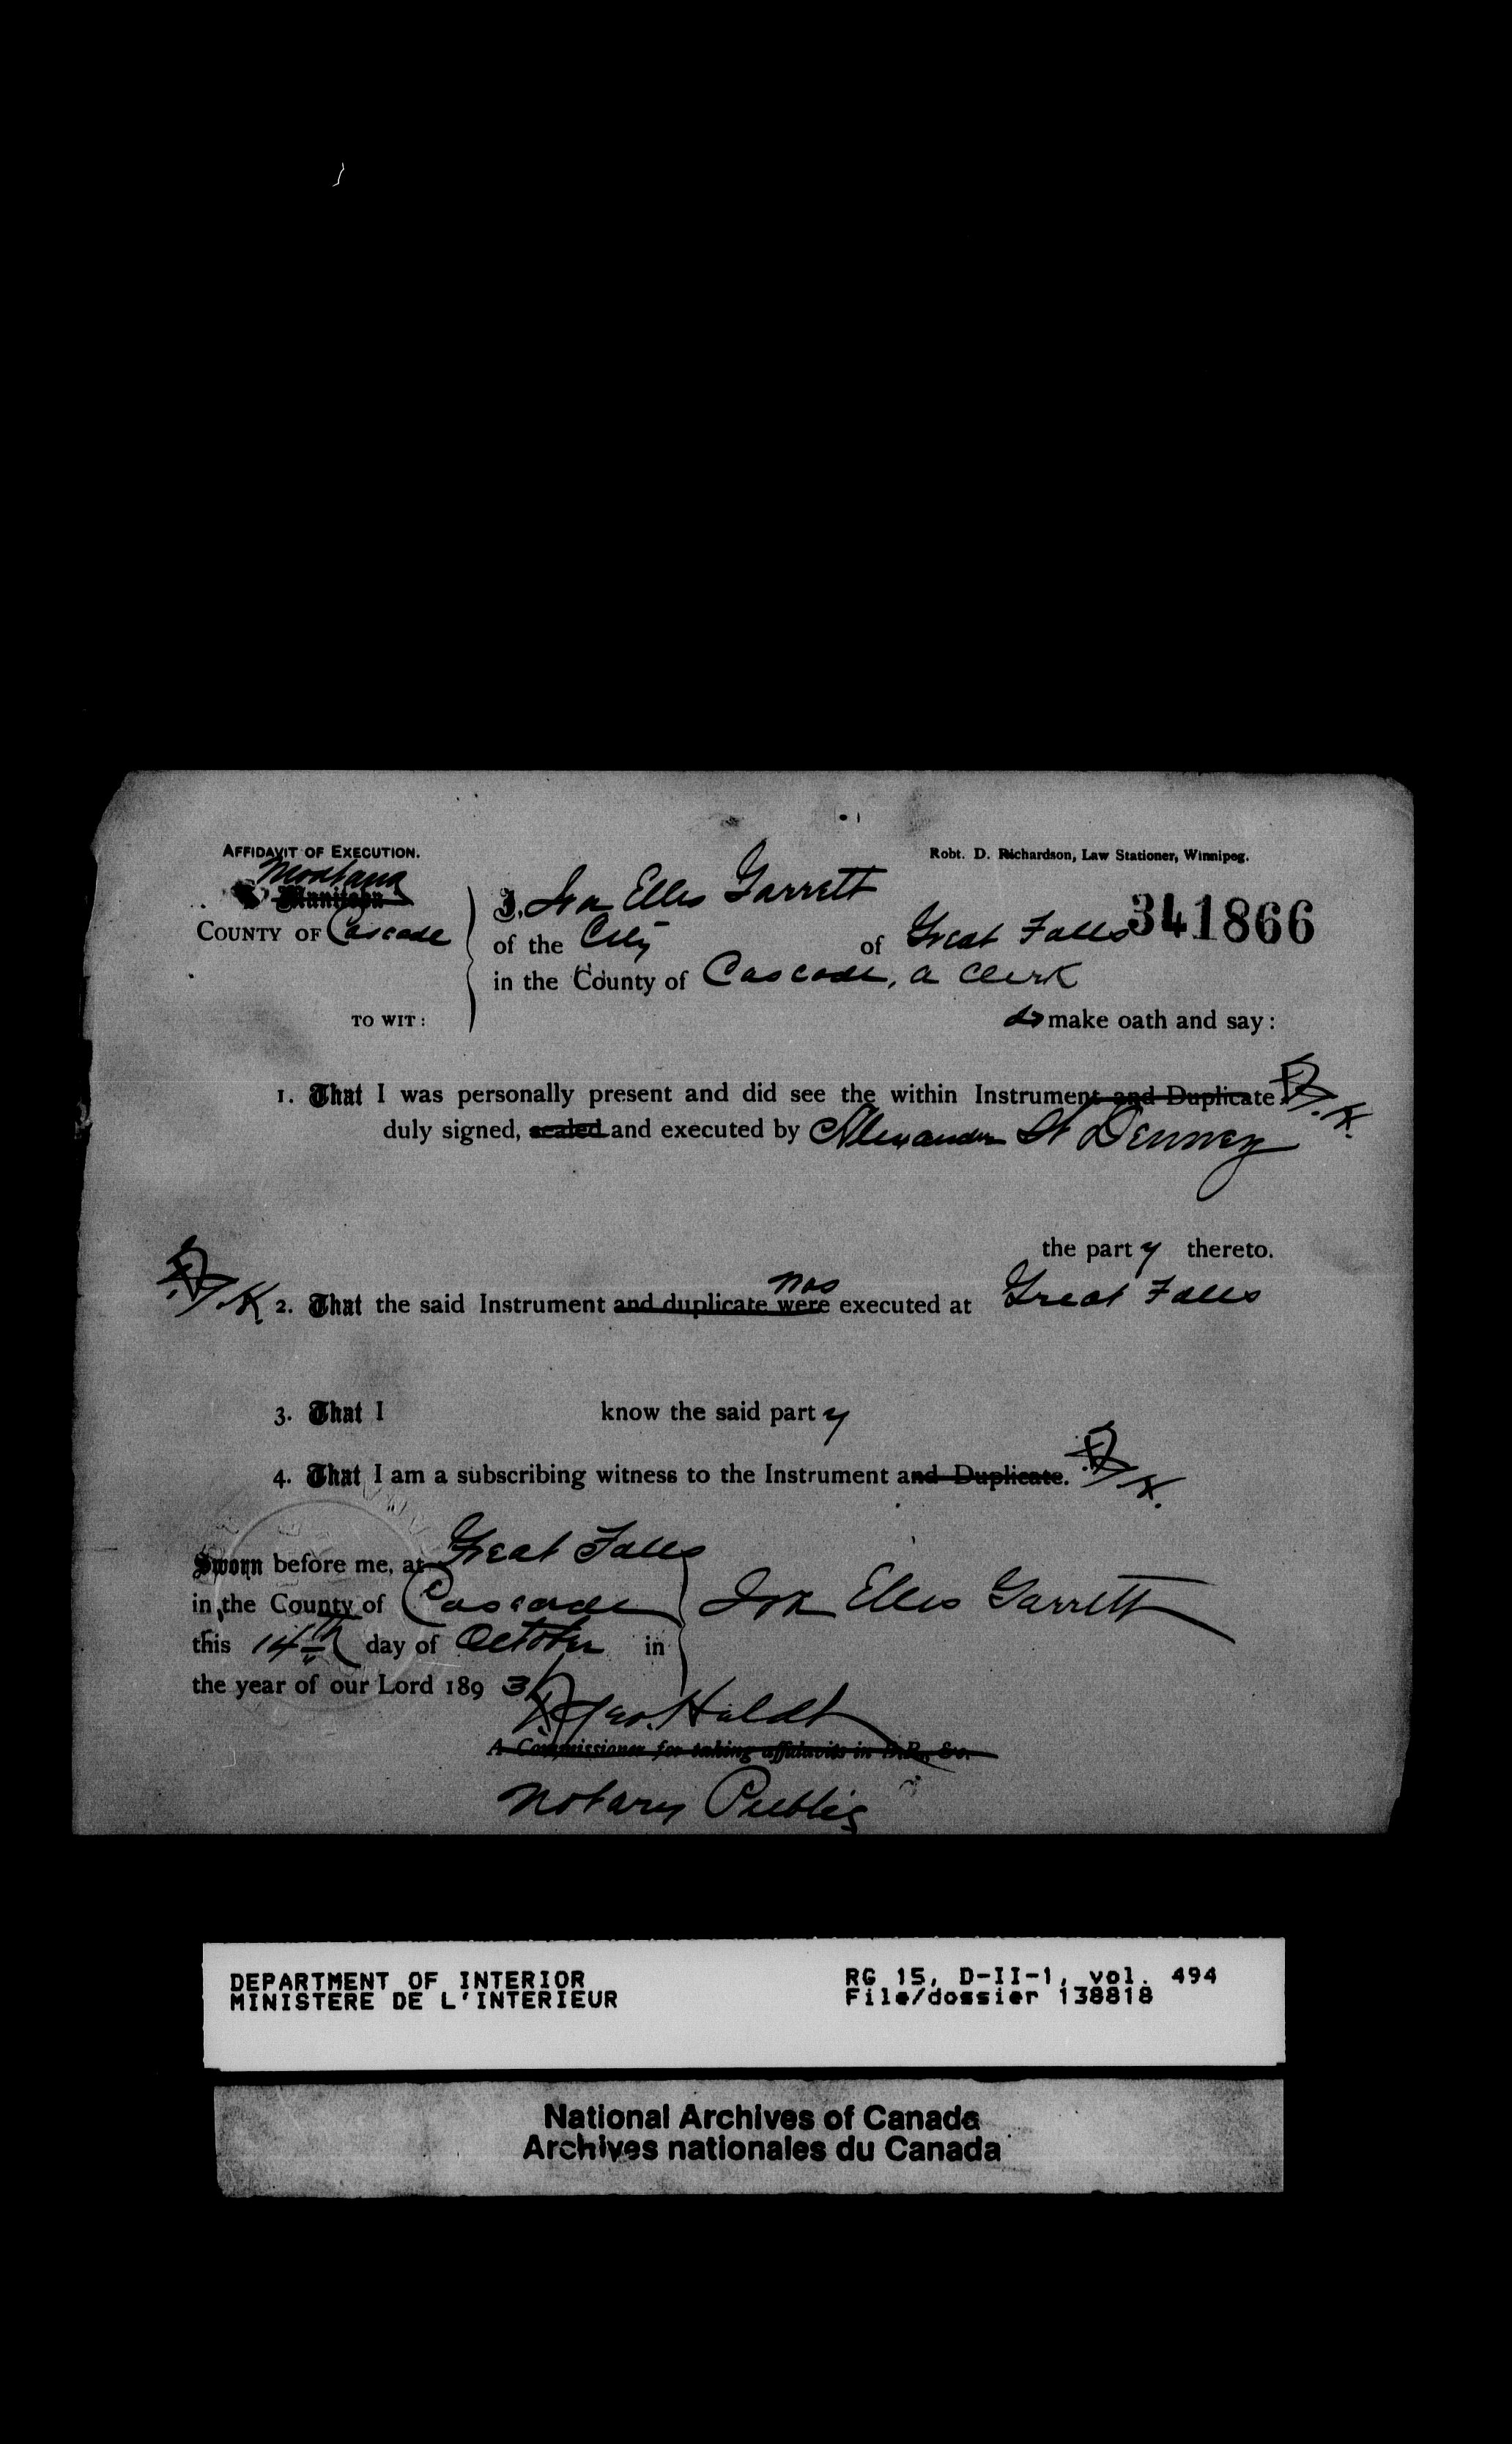 AFFIDAVIT OF EXECUTION.
Robt. D. Richardson, Law Stationer, Winnipeg.
Montana
Manitoba
COUNTY OF Cascade
TO WIT:
I, Ira Elles Garrett
of the City of Great Falls
341866
in the County of Cascade, a Clerk
do make oath and say:
1. That I was personally present and did see the within Instrument and Duplicate
duly signed, sealed and executed by Alexander St Denney
the party thereto.
was
2. That the said Instrument and duplicate were executed at Great Falls
3. That I know the said party
4. That I am a subscribing witness to the Instrument and Duplicate.
Sworn before me, at Great Falls
in the County of Cascade
Ira Elles Garrett
this 14th day of October in
the year of our Lord 1893
Heldt
A Commissioner for taking affidavits in B.R., &c.
Notary Public
DEPARTMENT OF INTERIOR
MINISTERE DE L'INTERIEUR
RG 15, D-II-1, vol. 494
File/dossier 138818
National Archives of Canada
Archives nationales du Canada